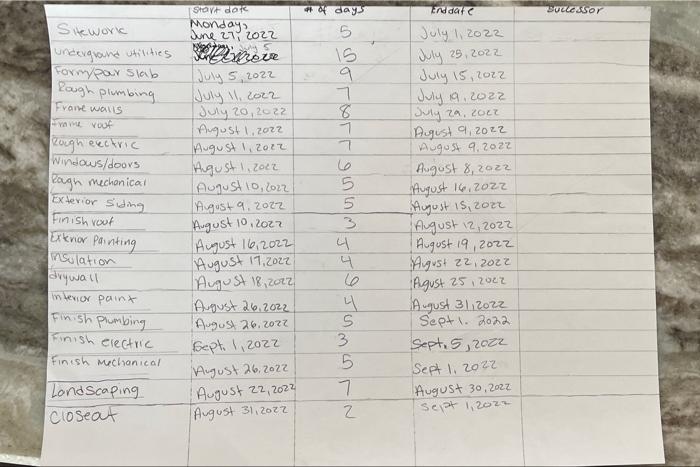 Start date # of days End date Successor
Sitework Monday, June 27, 2022 5 July 1, 2022
underground utilities July 5 15 July 25, 2022
Form/pour slab July 5, 2022 9 July 15, 2022
Rough plumbing July 11, 2022 7 July 19, 2022
Frame walls July 20, 2022 8 July 29, 2022
Frame roof August 1, 2022 7 August 9, 2022
Rough electric August 1, 2022 7 August 9, 2022
Windows/doors August 1, 2022 6 August 8, 2022
Rough mechanical August 10, 2022 5 August 16, 2022
Exterior Siding August 9, 2022 5 August 15, 2022
Finish roof August 10, 2022 3 August 12, 2022
Exterior Painting August 16, 2022 4 August 19, 2022
Insulation August 17, 2022 4 August 22, 2022
drywall August 18, 2022 6 August 25, 2022
Interior paint August 26, 2022 4 August 31, 2022
Finish Plumbing August 26, 2022 5 Sept 1. 2022
Finish electric Sept. 1, 2022 3 Sept. 5, 2022
Finish Mechanical August 26, 2022 5 Sept 1, 2022
Landscaping August 22, 2022 7 August 30, 2022
Closeout August 31, 2022 2 Sept 1, 2022